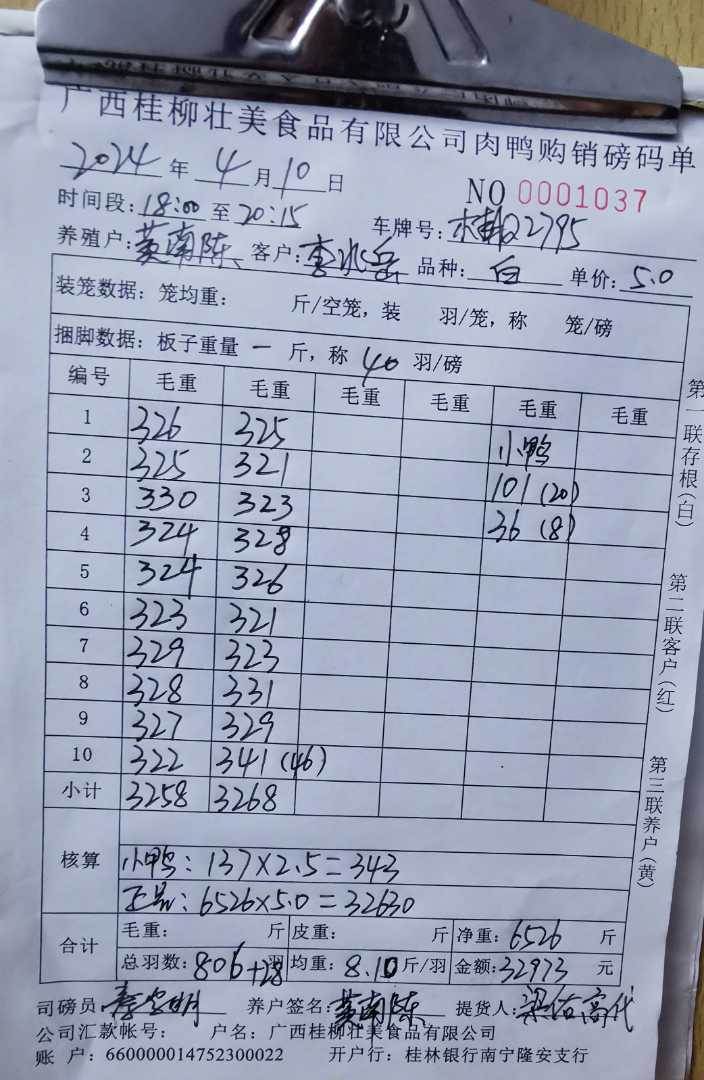 广西桂柳壮美食品有限公司肉鸭购销磅码单
2024年4月10日
NO 0001037
时间段:18:00至20:15 车牌号:Q2795
养殖户:黄南陈 客户:李冰岳 品种:白 单价:5.0
装笼数据:笼均重: 斤/空笼,装 羽/笼,称 笼/磅
捆脚数据:板子重量 一 斤,称 40 羽/磅
编号 毛重 毛重 毛重 毛重 毛重 毛重
1 326 325 小鸭
2 325 321 101 (20)
3 330 323 36 (8)
4 324 328
5 324 326
6 323 321
7 329 323
8 328 331
9 327 329
10 322 341 (46)
小计 3258 3268
核算
小鸭:137×2.5=343
正品:6526×5.0=32630
合计
毛重: 斤 皮重: 斤 净重:6526 斤
总羽数:806+28羽 均重:8.10斤/羽 金额:32973 元
司磅员: 养户签名:黄南陈 提货人:
公司汇款帐号: 户名:广西桂柳壮美食品有限公司
账 户:660000014752300022 开户行:桂林银行南宁隆安支行
第一联存根(白)
第二联客户(红)
第三联养户(黄)